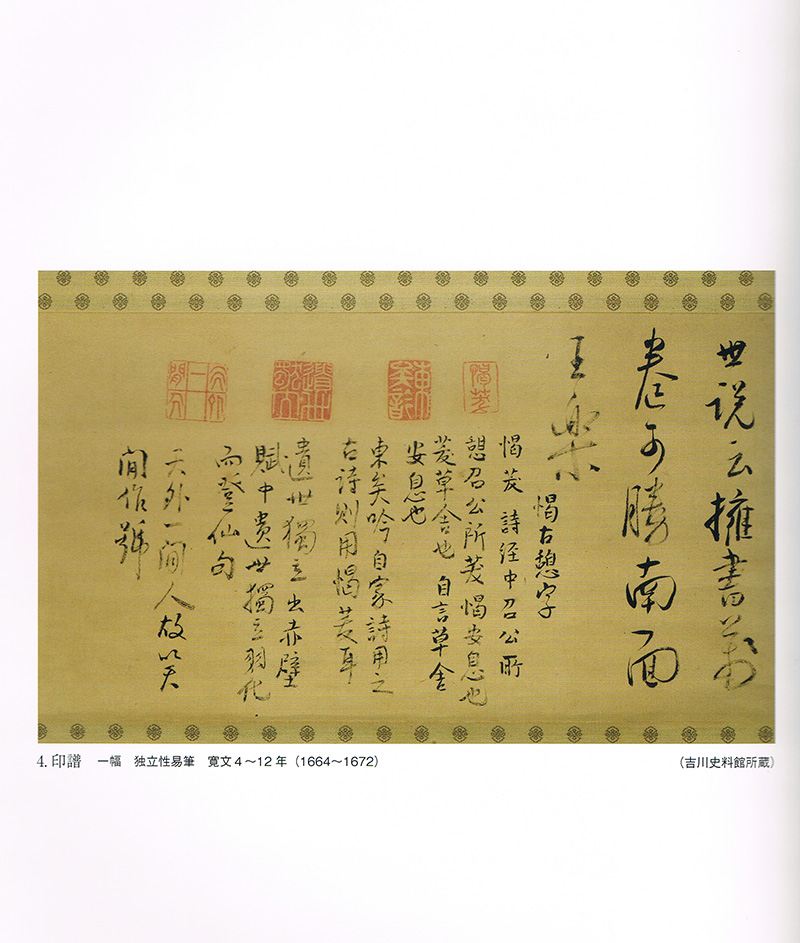 世説云擁書萬
卷可勝南面
王樂
愒古憩字
愒茇 詩经中召公所
憩召公所茇愒安息也
茇草舍也 自言草舍
安息也
東矣吟自家詩用之
古詩則用愒茇耳
遺世獨立出赤壁
賦中遺世獨立羽化
而登仙句
天外一閒人故以天
閒作號
愒茇
遺世獨立
天外一閒人
4. 印譜 一幅 独立性易筆 寛文4～12年（1664～1672）
（吉川史料館所蔵）